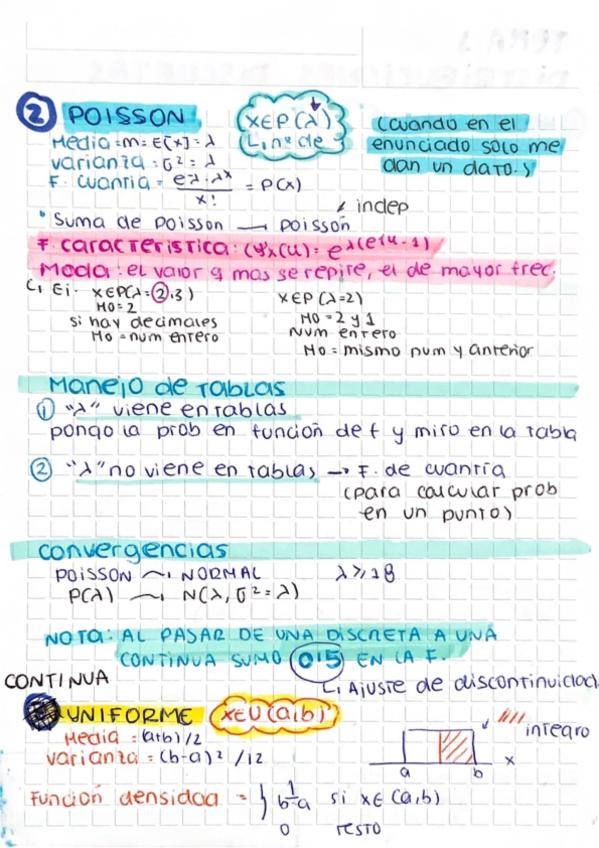 ② POISSON
X∈P(λ)
↳ nº de
(cuando en el
enunciado solo me
dan un dato.)
Media = m = E[x] = λ
varianza = σ² = λ
F. cuantía = e^-λ · λ^x / x! = P(x)
• Suma de Poisson → poisson
indep
F. característica: φx(u) = e^λ(e^iu - 1)
Moda: el valor q mas se repite, el de mayor frec.
↳ Ej. x∈P(λ=2,3)
M0 = 2
si hay decimales
M0 = num entero
x∈P(λ=2)
M0 = 2 y 1
Num entero
M0 = mismo num y anterior
Manejo de tablas
① "λ" viene en tablas
pongo la prob en función de f y miro en la tabla
② "λ" no viene en tablas → F. de cuantía
(para calcular prob
en un punto)
convergencias
POISSON ~ NORMAL λ ≥ 18
P(λ) ~ N(λ, σ² = λ)
NOTA: AL PASAR DE UNA DISCRETA A UNA
CONTINUA SUMO 0'5 EN LA F.
↳ Ajuste de discontinuidad
CONTINUA
UNIFORME X∈U(a,b)
Media = (a+b)/2
varianza = (b-a)²/12
integro
a b x
Función densidad = } 1/b-a si x∈(a,b)
0 resto